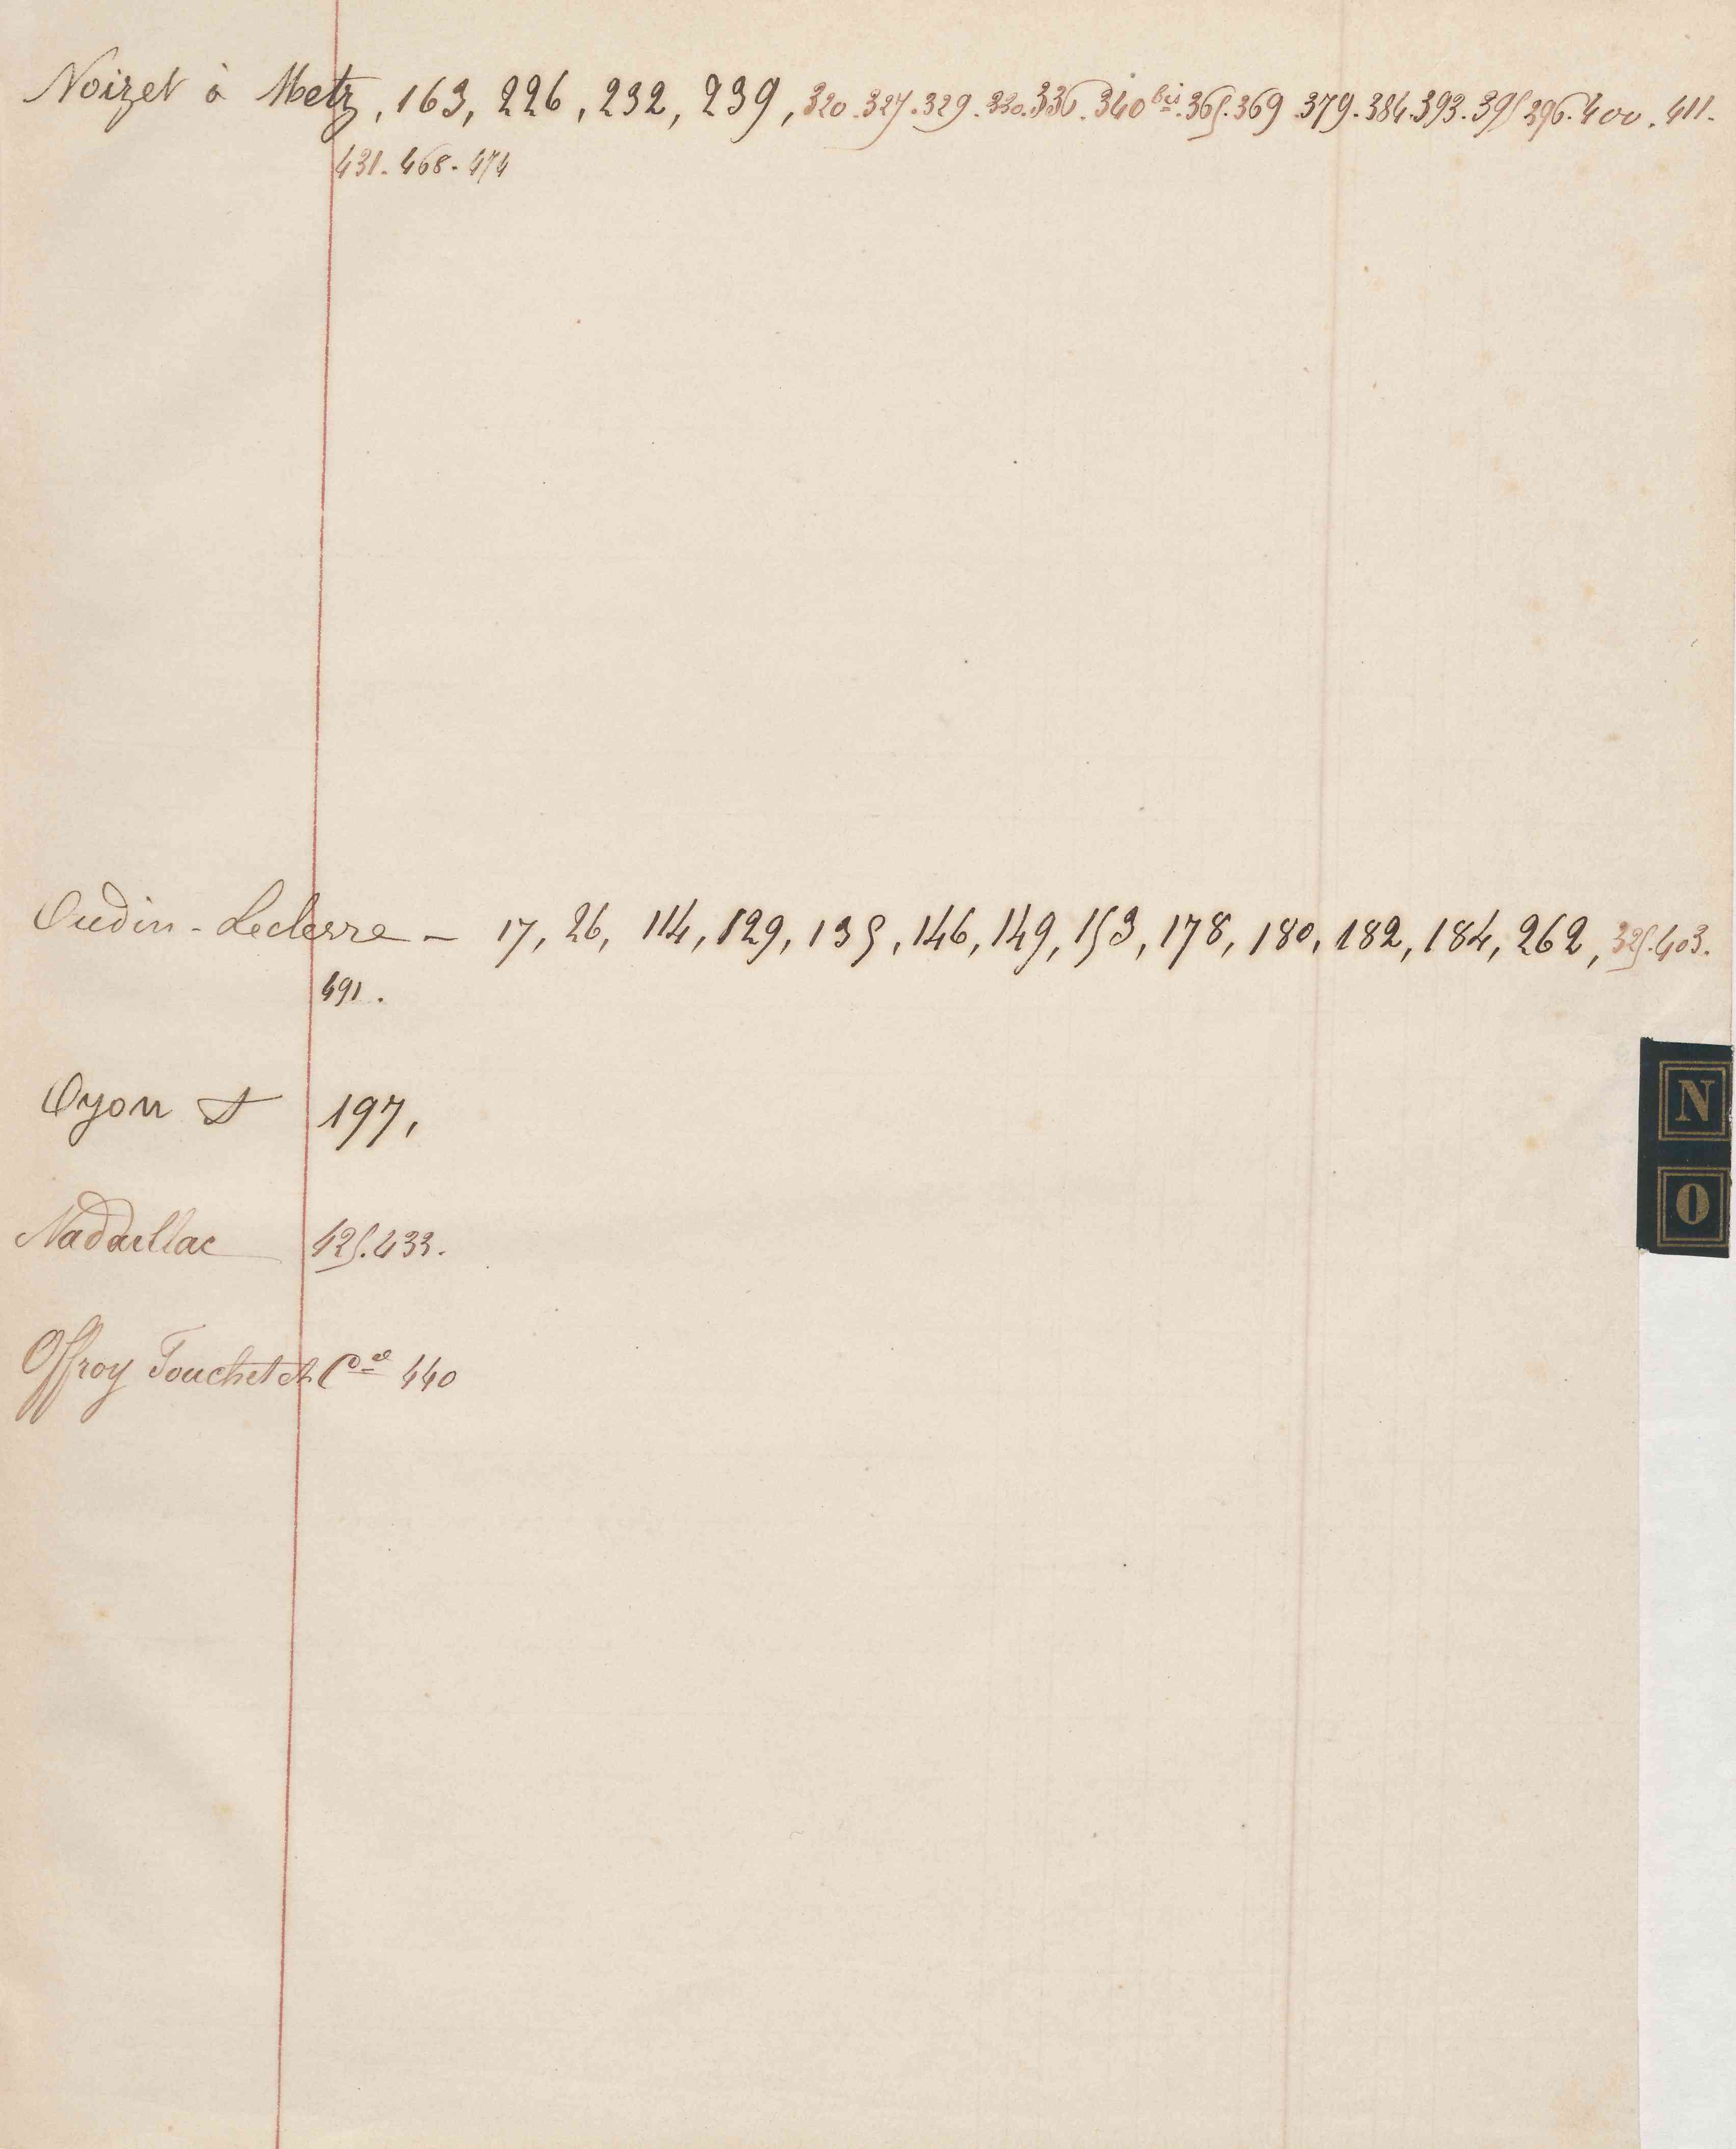 Noizet à Metz, 163, 226, 232, 239, 320. 327. 329. 330. 336. 340 bis. 365. 369. 379. 384. 393. 395 396. 400. 411.
431. 468. 474
Oudin-Leclerre - 17, 26, 114, 129, 135, 146, 149, 153, 178, 180, 182, 184, 262, 325. 403.
491.
Oyon 197,
N
Nadaillac 425. 433.
O
Offroy Touchet et Cie 440